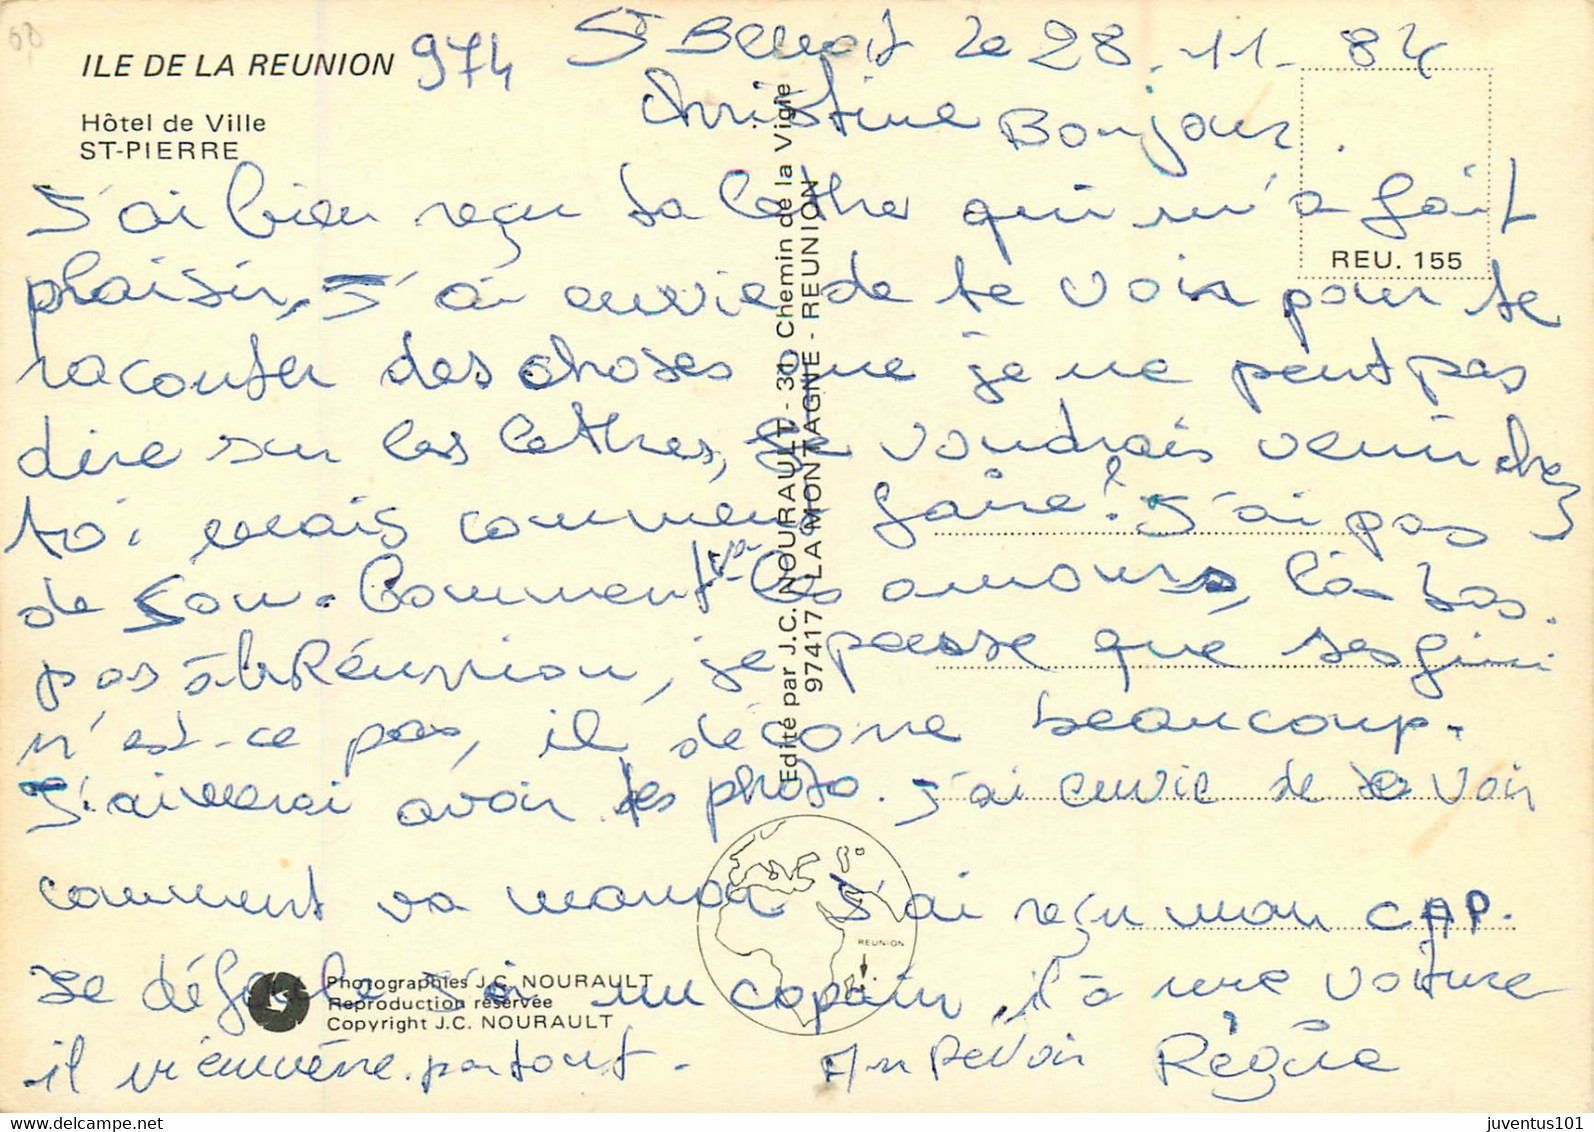 ILE DE LA REUNION
974
St Benoit le 28.11.84
Hôtel de Ville
ST-PIERRE
Christine Bonjour.
J'ai bien reçu ta lethre qui m'a fait
plaisir, J'ai envie de te voir pour te
raconter des choses que je ne peut pas
dire sur les lethres, Je voudrais venir chez
toi mais comment faire! J'ai pas
de Sou. Comment va les amours, là-bas.
pas à la Réunion, je passe que
n'est-ce pas, il déconne beaucoup.
J'aimerai avoir tes photo. J'ai envie de te voir
comment va maman J'ai reçu mon CAP.
Je J'ai un copain, il à une voiture
il m'emmène partout. Au Revoir Régîne
REU. 155
Edité par J.C. NOURAULT - 30 Chemin de la Vigie
97417 LA MONTAGNE - REUNION
REUNION
Photographies J.C. NOURAULT
Reproduction réservée
Copyright J.C. NOURAULT
juventus101